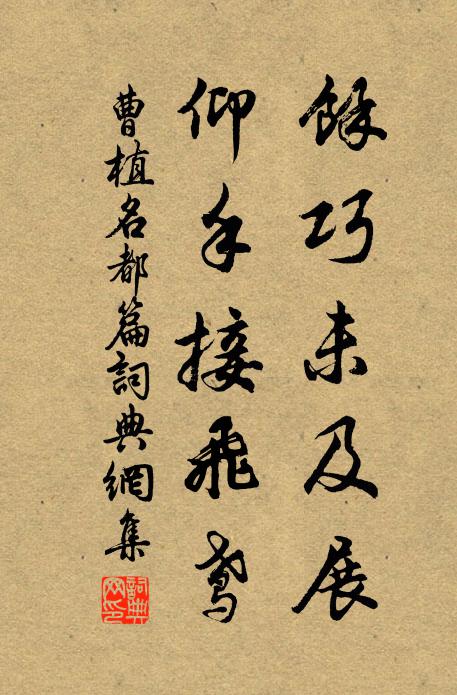 餘巧未及展
仰手接飛鳶
曹植名都篇詞典網集
詞典网印